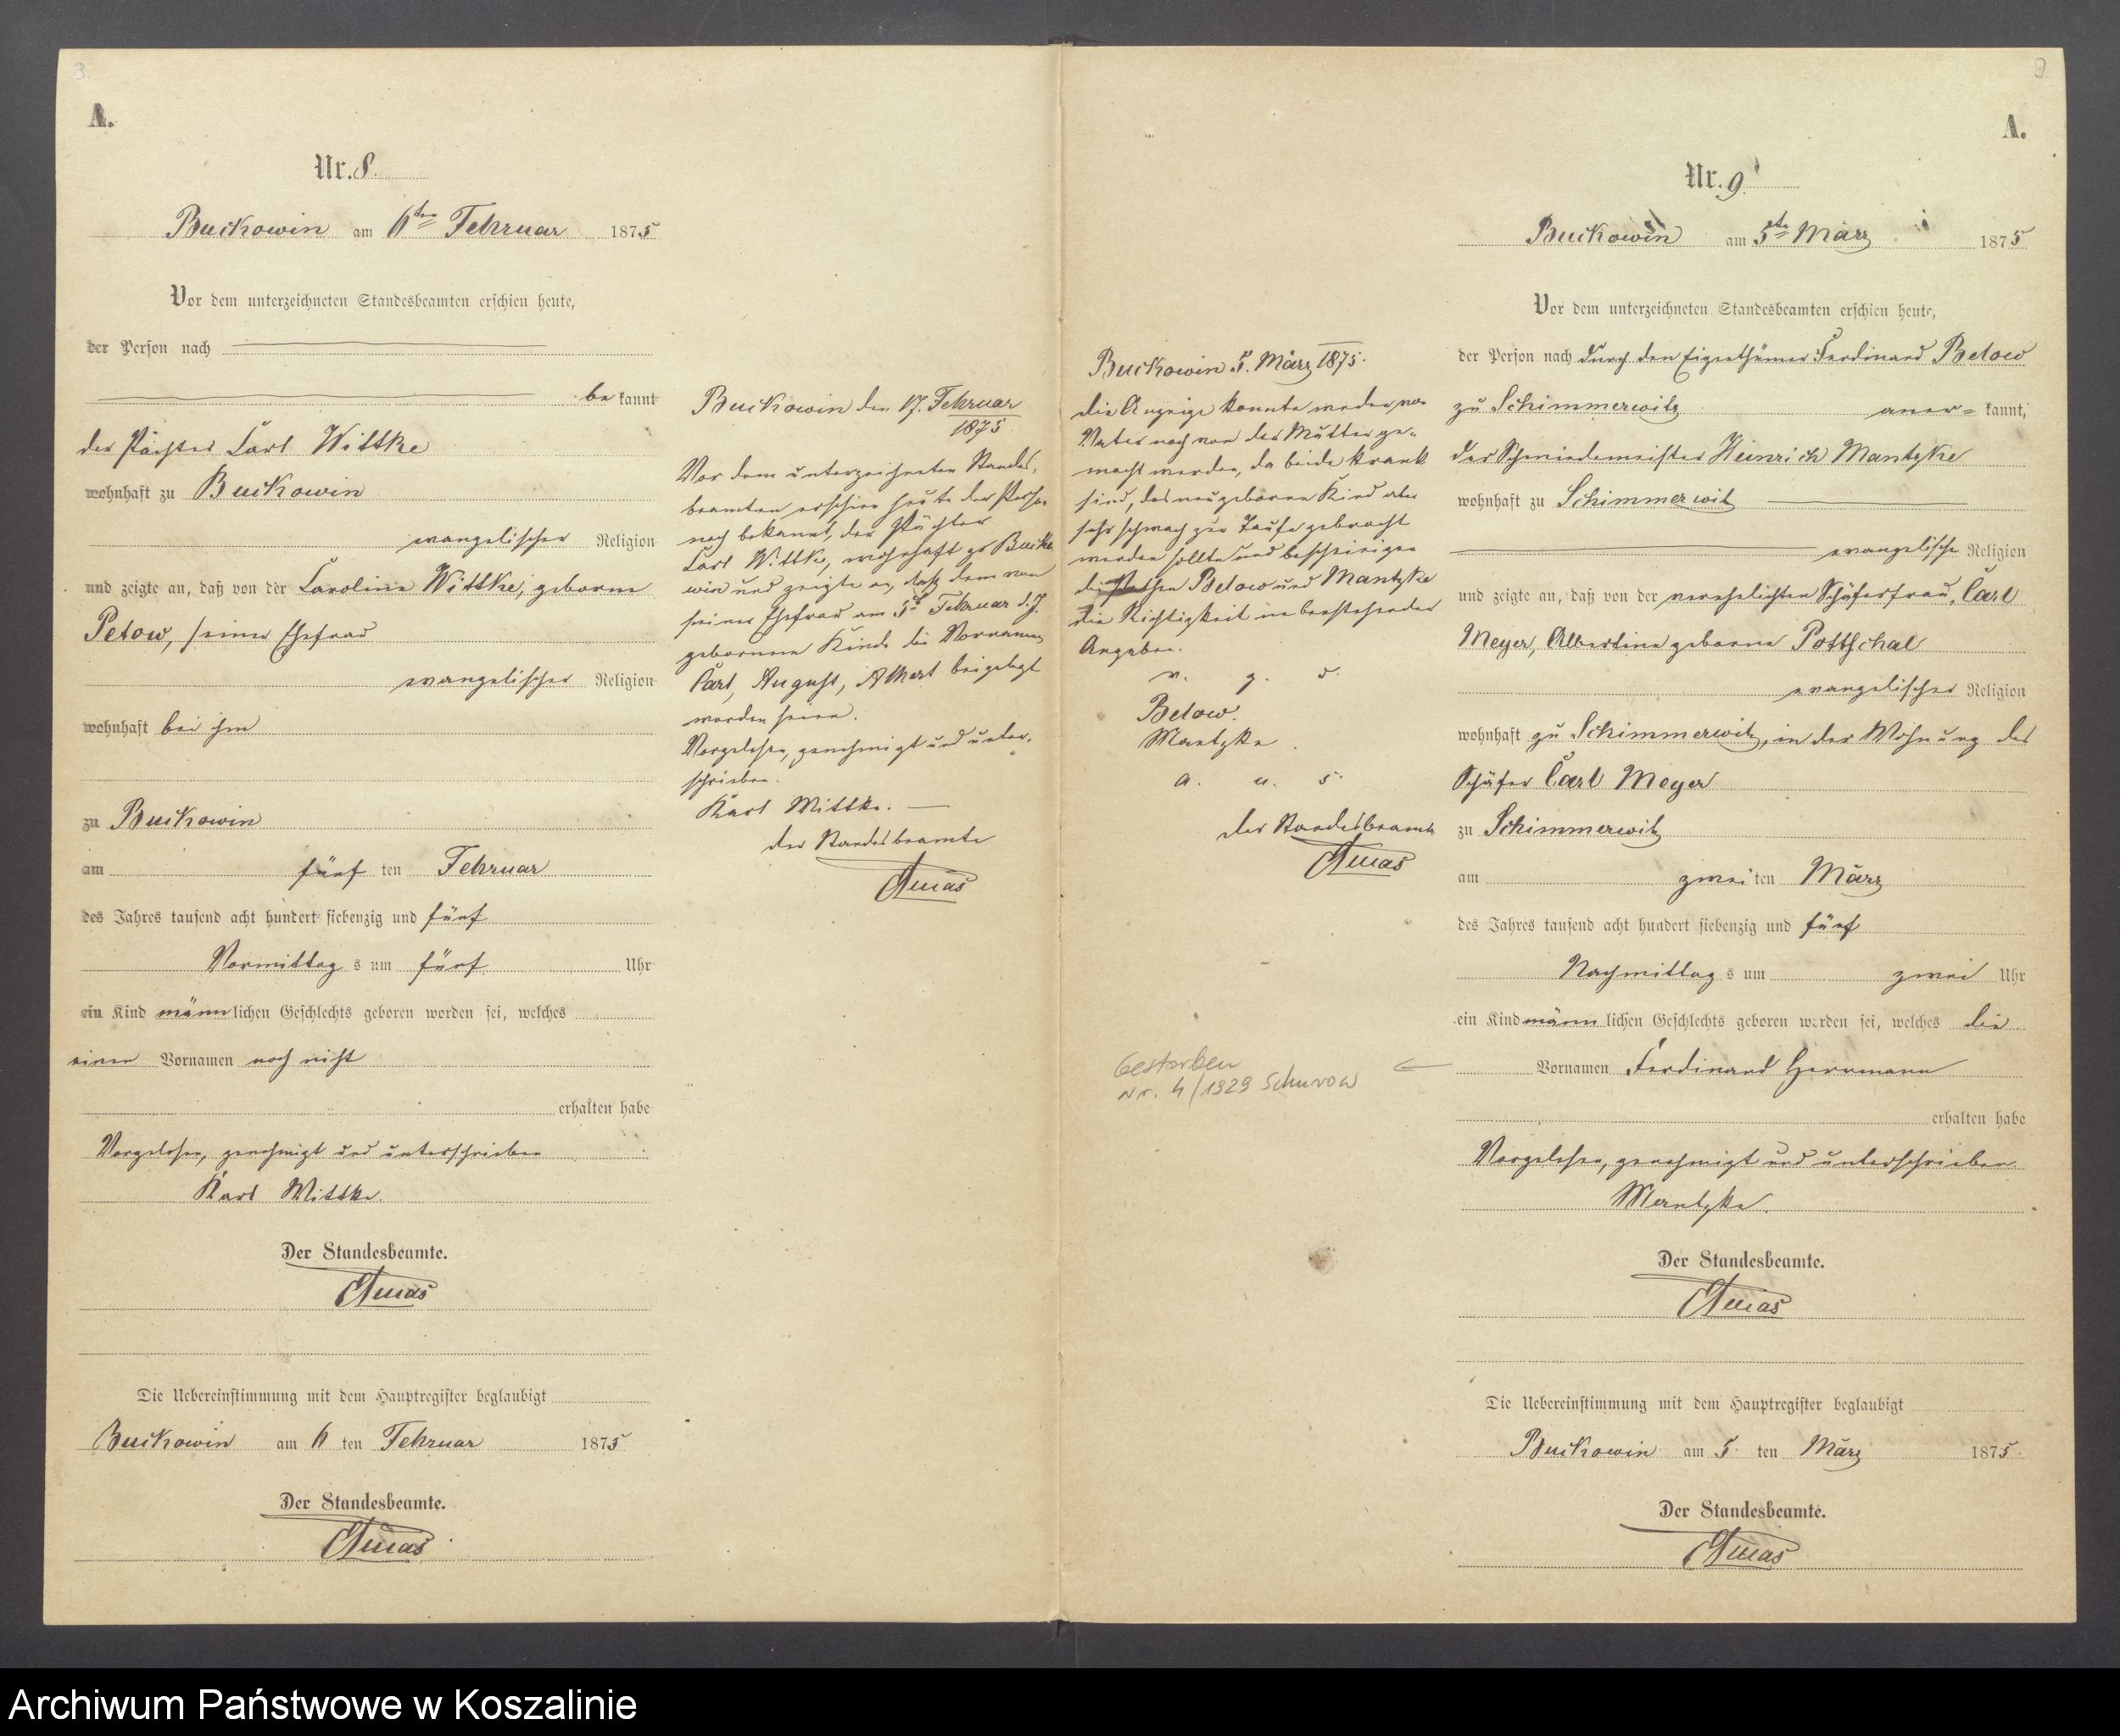 8.
A.
Nr. 8.
Buckowin am 6ten Februar 1875
Vor dem unterzeichneten Standesbeamten erschien heute,
der Person nach
bekannt
der Pächter Carl Wittke
wohnhaft zu Buckowin
evangelischer Religion
und zeigte an, daß von der Caroline Wittke, geborne
Petow, seiner Ehefrau
evangelischer Religion
wohnhaft bei ihm
zu Buckowin
am fünf ten Februar
des Jahres tausend acht hundert siebenzig und fünf
Vormittags um fünf Uhr
ein Kind männlichen Geschlechts geboren worden sei, welches
einen Vornamen noch nicht
erhalten habe
Vorgelesen, genehmigt und unterschrieben
Karl Wittke.
Der Standesbeamte.
Die Uebereinstimmung mit dem Hauptregister beglaubigt
Buckowin am 6 ten Februar 1875
Der Standesbeamte.
Buckowin den 17. Februar
1875
Vor dem unterzeichneten Standes-
beamten erschien heute der Person
nach bekannt, der Pächter
Carl Wittke, wohnhaft zu Bucko
win und zeigte an, daß dem von
seiner Ehefrau am 5t Februar d. J.
geborenen Kinde die Vornamen
Carl, August, Albert beigelegt
worden seien.
Vorgelesen, genehmigt und unter-
schrieben.
Karl Wittke.
der Standesbeamte
Buckowin 5. März 1875.
die Anzeige konnte weder vom
Vater noch von der Mutter ge-
macht werden, da beide krank
sind, das neugeborne Kind aber
sehr schwach zur Taufe gebracht
werden sollte und bescheinigen
die Pathen Betow und Mantzke
die Richtigkeit nebenstehender
Angaben.
v. g. u.
Betow.
Mantzke.
a. u. s.
der Standesbeamte
Gestorben
Nr. 4/1929 Schurow
9
A.
Nr. 9.
Buckowin am 5te März 1875
Vor dem unterzeichneten Standesbeamten erschien heute,
der Person nach durch den Eigenthümer Ferdinand Betow
zu Schimmerwitz aner= kannt,
der Schmiedemeister Heinrich Mantzke
wohnhaft zu Schimmerwitz
evangelische Religion
und zeigte an, daß von der verehelichten Schäferfrau, Carl
Meyer, Albertine geborne Pottschal
evangelischer Religion
wohnhaft zu Schimmerwitz, in der Wohnung des
Schäfer Carl Meyer
zu Schimmerwitz
am zwei ten März
des Jahres tausend acht hundert siebenzig und fünf
Nachmittags um zwei Uhr
ein Kind männlichen Geschlechts geboren worden sei, welches die
Vornamen Ferdinand Herrmann
erhalten habe
Vorgelesen, genehmigt und unterschrieben.
Mantzke.
Der Standesbeamte.
Die Uebereinstimmung mit dem Hauptregister beglaubigt
Buckowin am 5. ten März 1875.
Der Standesbeamte.
Archiwum Państwowe w Koszalinie